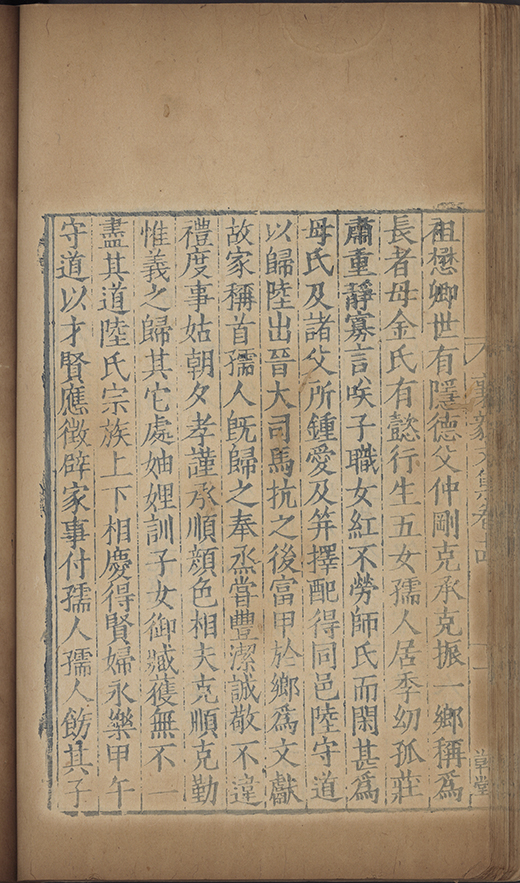 襄毅文集卷
草堂
祖懋卿世有隱德父仲剛克承克振一鄉稱為
長者母金氏有懿行生五女孺人居季幼孤莊
肅重靜寡言唉子職女紅不勞師氏而閑甚為
母氏及諸父所鍾愛及筓擇配得同邑陸守道
以歸陸出晉大司馬抗之後富甲於鄉為文獻
故家稱首孺人旣歸之奉烝甞豐潔誠敬不違
禮度事姑朝夕孝謹承順顏色相夫克順克勤
惟義之歸其它處妯娌訓子女御臧獲無不一
盡其道陸氏宗族上下相慶得賢婦永樂甲午
守道以才賢應徵辟家事付孺人孺人飭其子